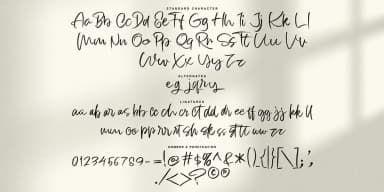 STANDARD CHARACTER
Aa Bb Cc Dd Ee Ff Gg Hh Ii Jj Kk Ll
Mm Nn Oo Pp Qq Rr Ss Tt Uu Vv
Ww Xx Yy Zz
ALTERNATES
e g j q r y
LIGATURES
aa ab ar as bb cc ch cr ct dd dt ee ff gg jj kk ll
mm oo pp rr st sh sk ss tt uu ww ee zz
NUMBER & PUNCTUATION
0123456789-=!@#$%^&*(){}[\];',
./<>?©®